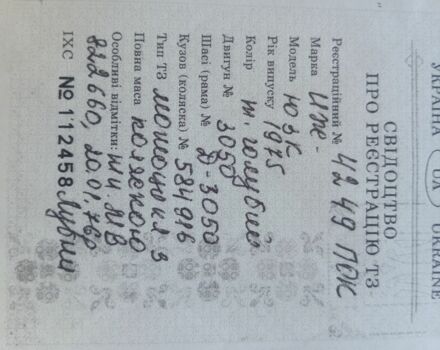 УКРАЇНА UA UKRAINE
СВІДОЦТВО
ПРО РЕЄСТРАЦІЮ ТЗ
Реєстраційний № 4249 ПОК
Марка ИЖ-
Модель Ю3К
Рік випуску 1975
Колір т. голубий
Двигун № 3050
Шасі (рама) № 3050
Кузов (коляска) № 584916
Тип ТЗ мотоцикл з
Повна маса коляскою
Особливі відмітки:
822660, 20.01.76р
ІХС № 112458